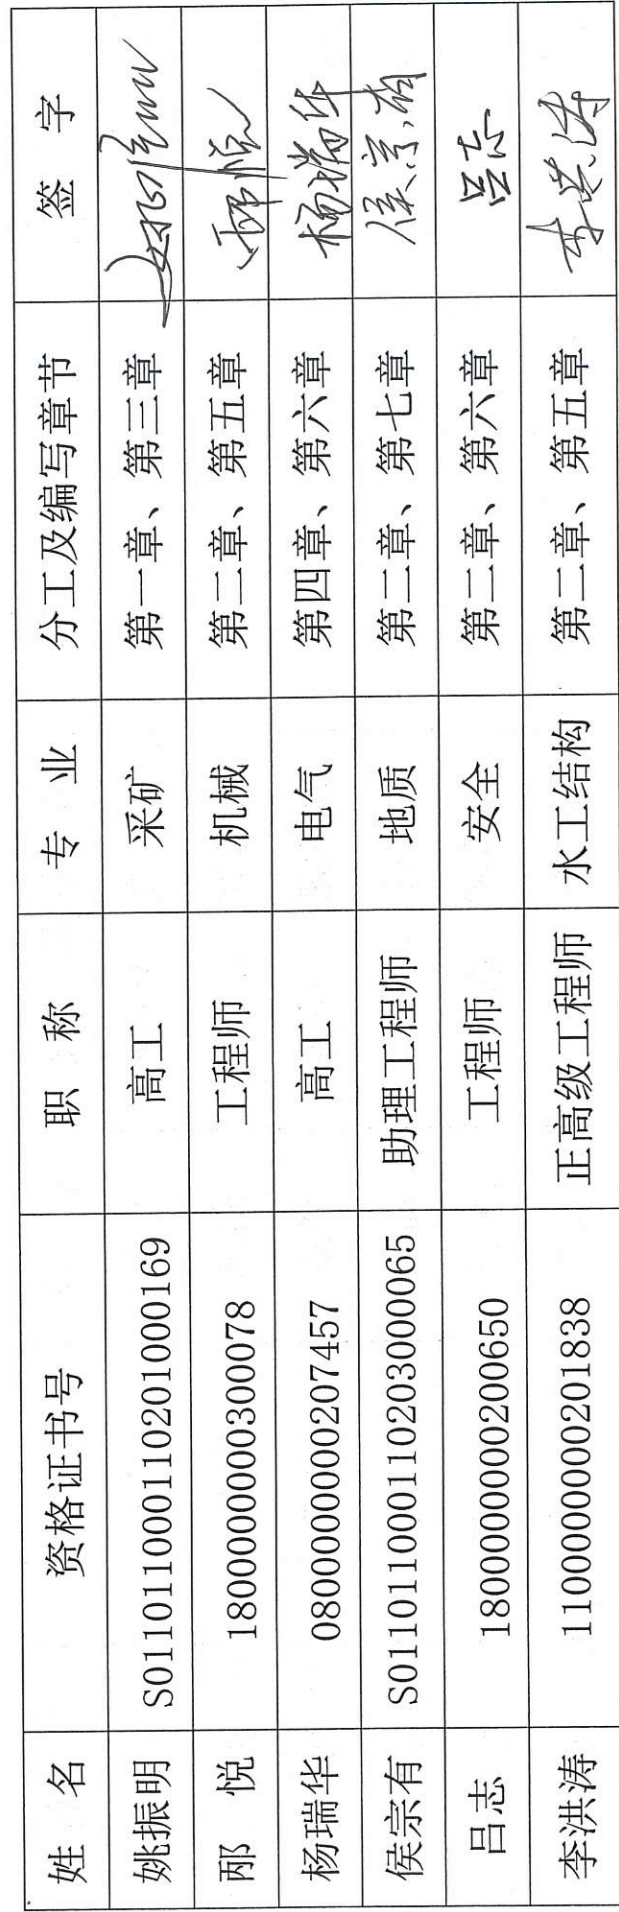 姓 名 资格证书号 职 称 专 业 分工及编写章节 签 字
姚振明 S011011000110201000169 高工 采矿 第一章、第三章 姚振明
邴 悦 1800000000300078 工程师 机械 第二章、第五章 邴悦
杨瑞华 0800000000207457 高工 电气 第四章、第六章 杨瑞华
侯宗有 S011011000110203000065 助理工程师 地质 第二章、第七章 侯宗有
吕志 1800000000200650 工程师 安全 第二章、第六章 吕志
李洪涛 1100000000201838 正高级工程师 水工结构 第二章、第五章 李洪涛